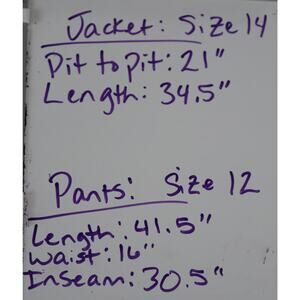 Jacket: Size 14
Pit to pit: 21"
Length: 34.5"
Pants: Size 12
Length: 41.5"
Waist: 16"
Inseam: 30.5"